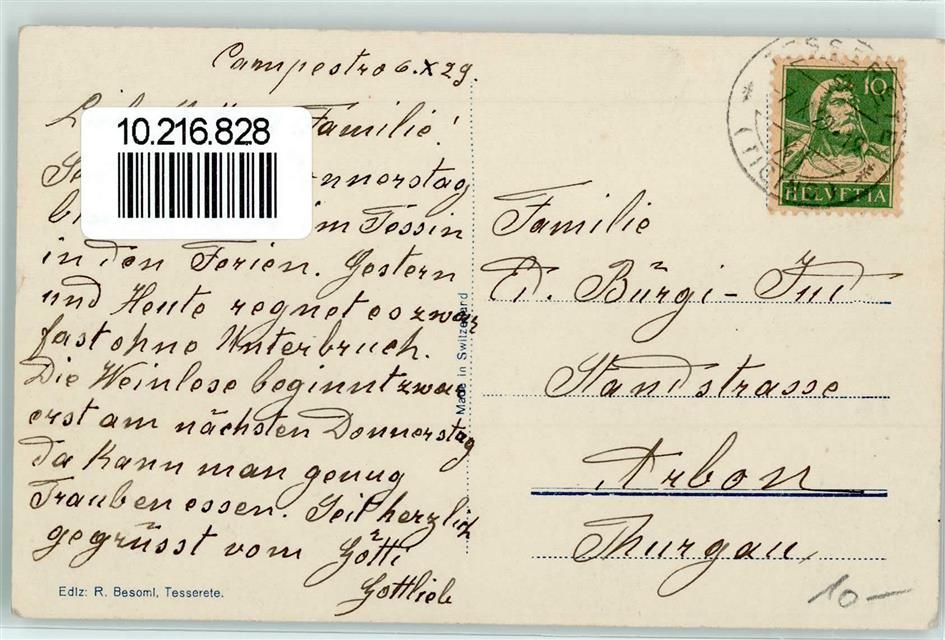 Campestro 6.X29.
Familie!
10.216.828
nnerstag
im Tessin
in den Ferien. Gestern
und Heute regnet es zwar
fast ohne Unterbruch.
Die Weinlese beginnt zwar
erst am nächsten Donnerstag
da kann man genug
Trauben essen. Seit herzlich
gegrüsst vom Götti
Gottlieb
Edlz: R. Besomi, Tesserete.
Made in Switzerland
10
HELVETIA
TESSERETE
Familie
E. Bürgi-Jud
Standstrasse
Arbon
Thurgau,
10—